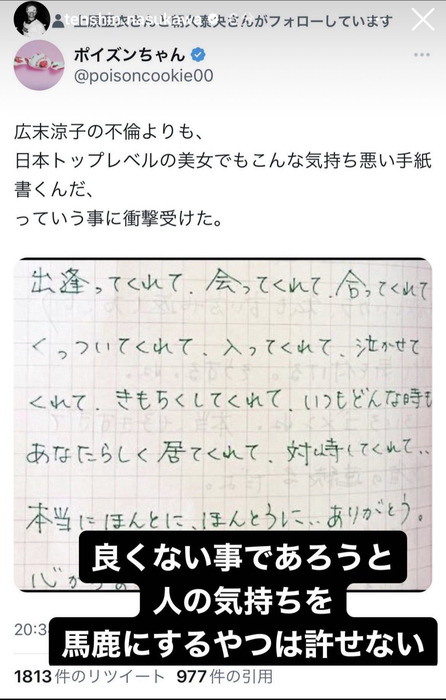 ポイズンちゃん
@poisoncookie00
広末涼子の不倫よりも、
日本トップレベルの美女でもこんな気持ち悪い手紙
書くんだ、
っていう事に衝撃受けた。
出逢ってくれて、会ってくれて、合ってくれて
くっついてくれて、入ってくれて、泣かせて
くれて、きもちくしてくれて、いつもどんな時も
あなたらしく居てくれて、対峙してくれて、、
本当にほんとに、ほんとうに、、ありがとう。
良くない事であろうと
人の気持ちを
馬鹿にするやつは許せない
1813件のリツイート 977件の引用